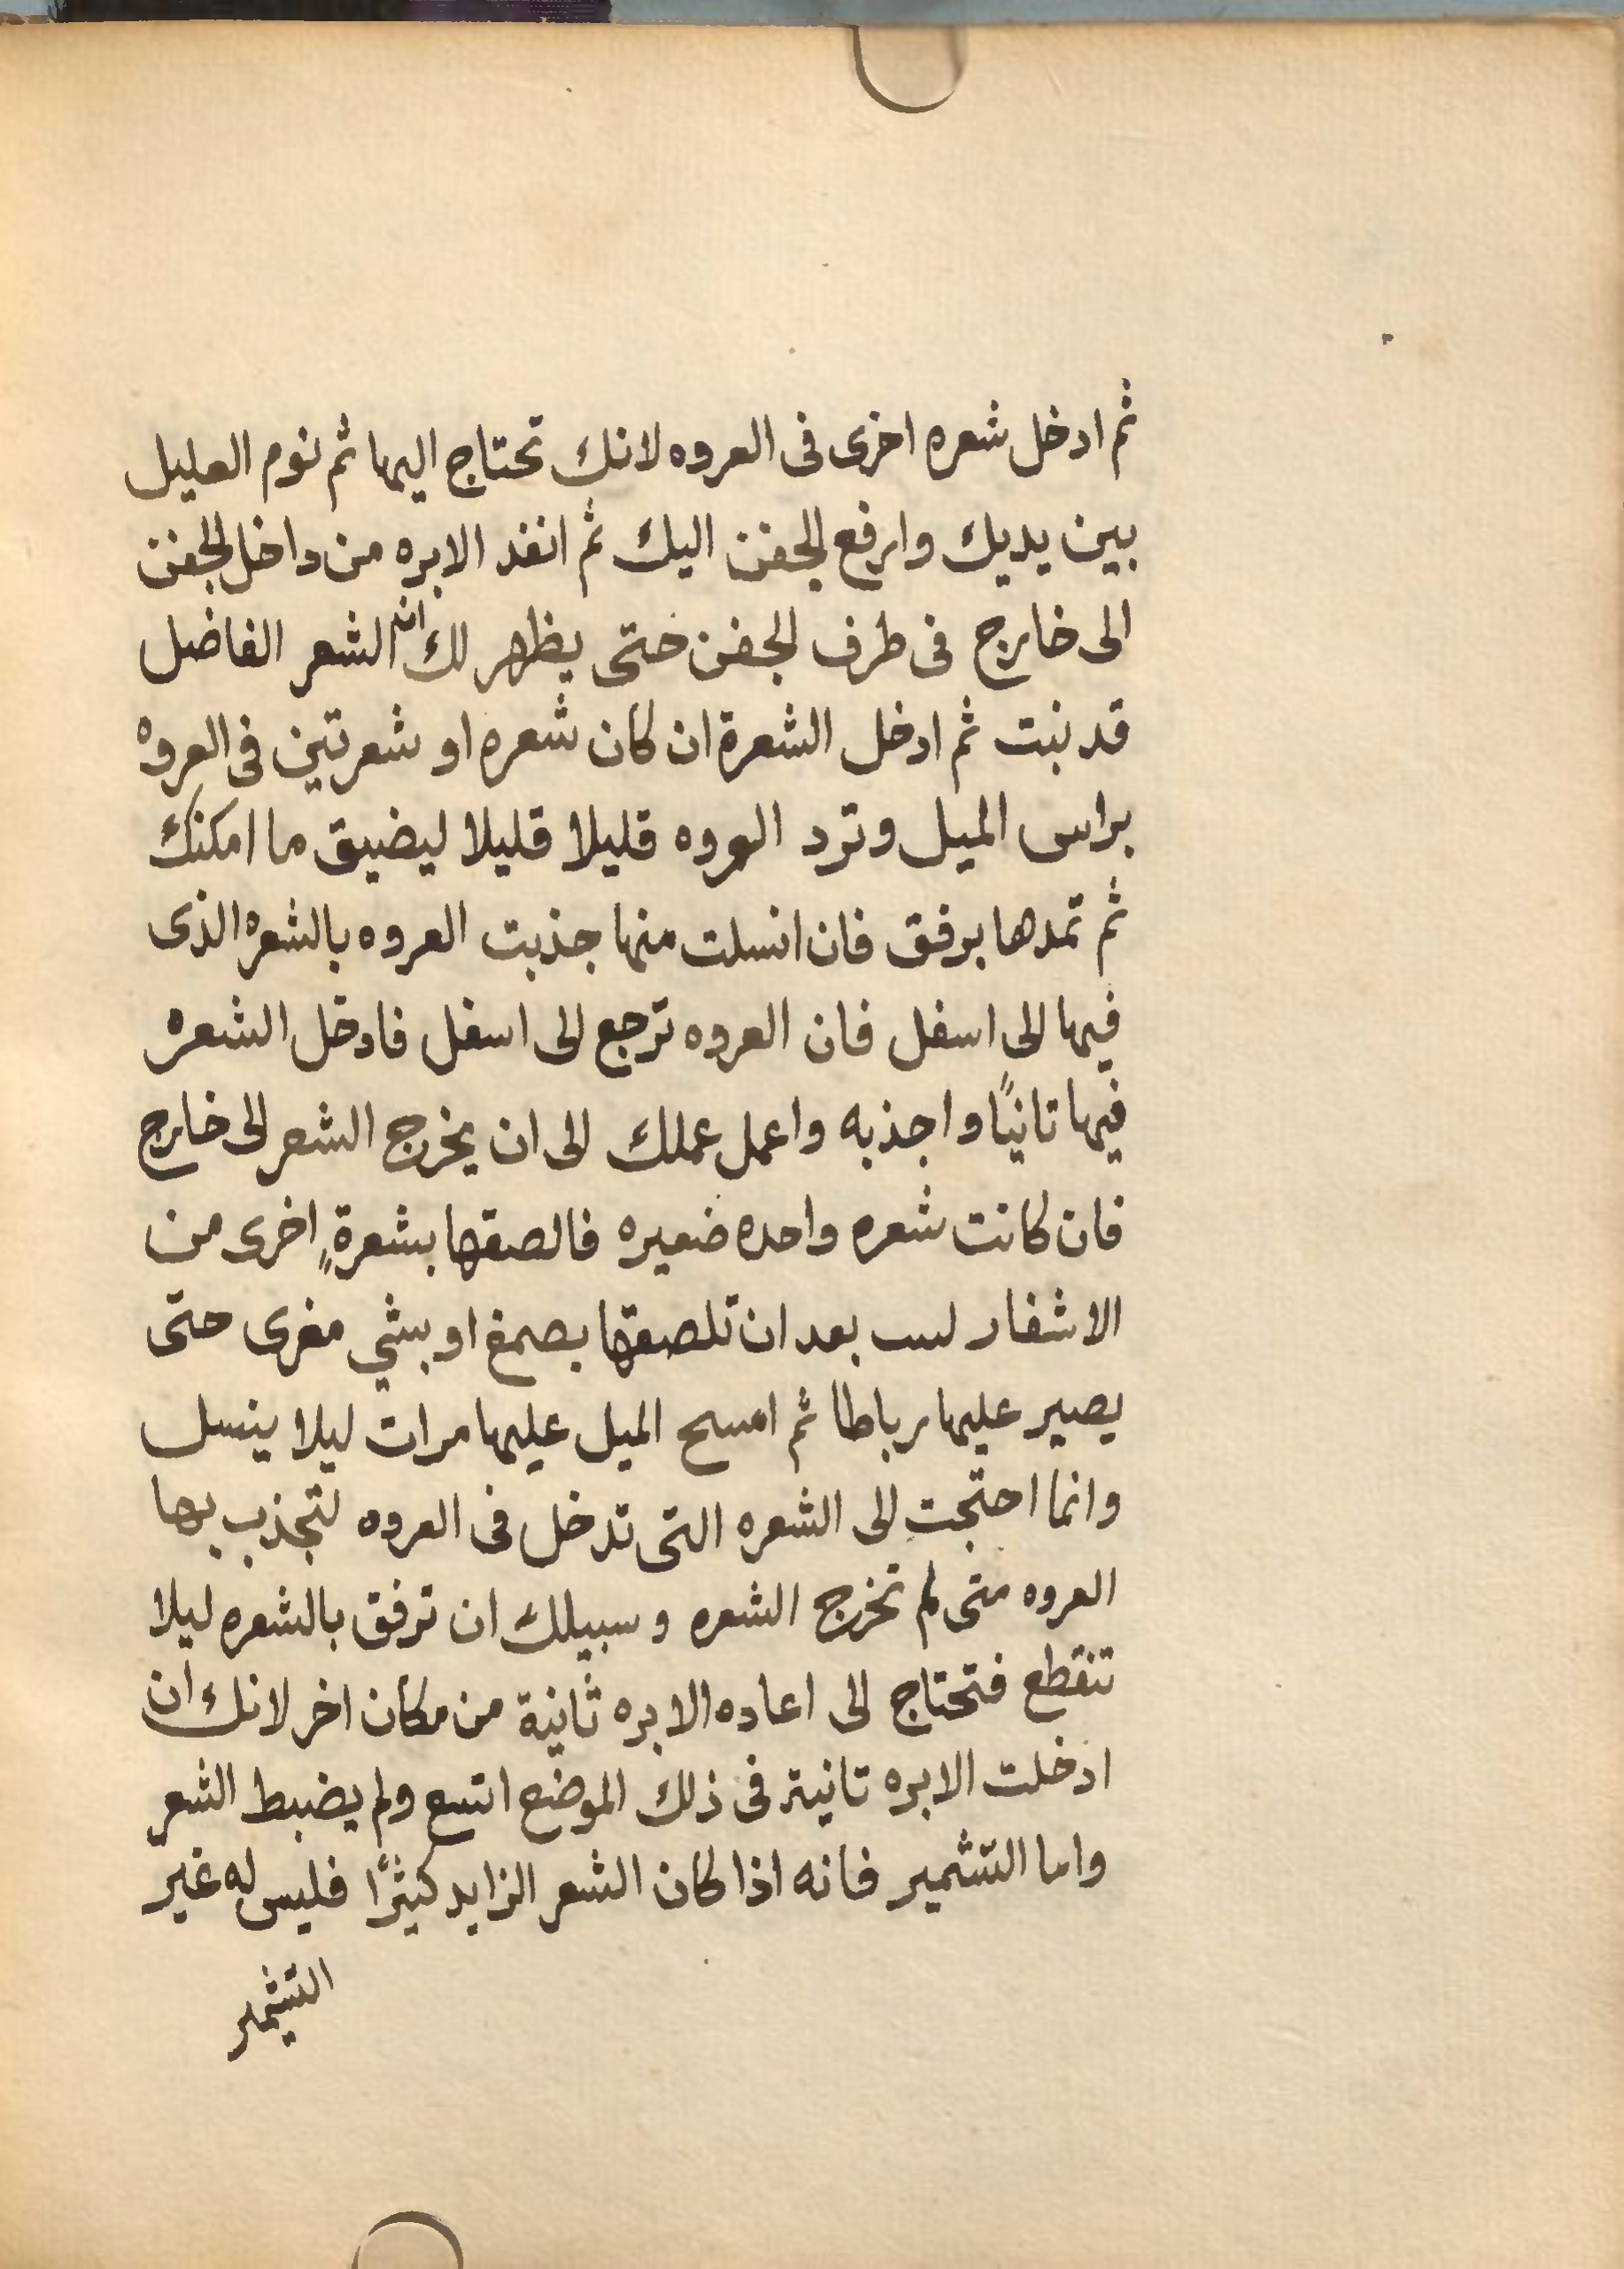 ثم ادخل شعره اخرى فى العروه لانك تحتاج اليها ثم نوم العليل
بين يديك وارفع الجفن اليك ثم انفد الابره من داخل الجفن
الى خارج فى طرف الجفن حتى يظهر لك انه الشعر الفاضل
قد نبت ثم ادخل الشعرة ان كان شعره او شعرتين فى العروه
براس الميل وترد العروه قليلا قليلا ليضيق ما امكنك
ثم تمدها برفق فان انسلت منها جذبت العروه بالشعره الذى
فيها الى اسفل فان العروه ترجع الى اسفل فادخل الشعره
فيها تانيًا واجذبه واعمل عملك الى ان يخرج الشعر الى خارج
فان كانت شعره واحده ضعيره فالصقها بشعرةٍ اخرى من
الاشفار بعد ان تلصقها بصمغ او بشي مغرى حتى
يصير عليها رباطا ثم امسح الميل عليها مرات ليلا ينسل
وانما احتجت الى الشعره التى تدخل فى العروه لتجذب بها
العروه متى لم تخرج الشعره وسبيلك ان ترفق بالشعره ليلا
تنقطع فتحتاج الى اعاده الابره ثانية من مكان اخر لانك ان
ادخلت الابره تانية فى ذلك الموضع اتسع ولم يضبط الشعر
واما التشمير فانه اذا كان الشعر الزايد كثيرًا فليس له غير
التشمير